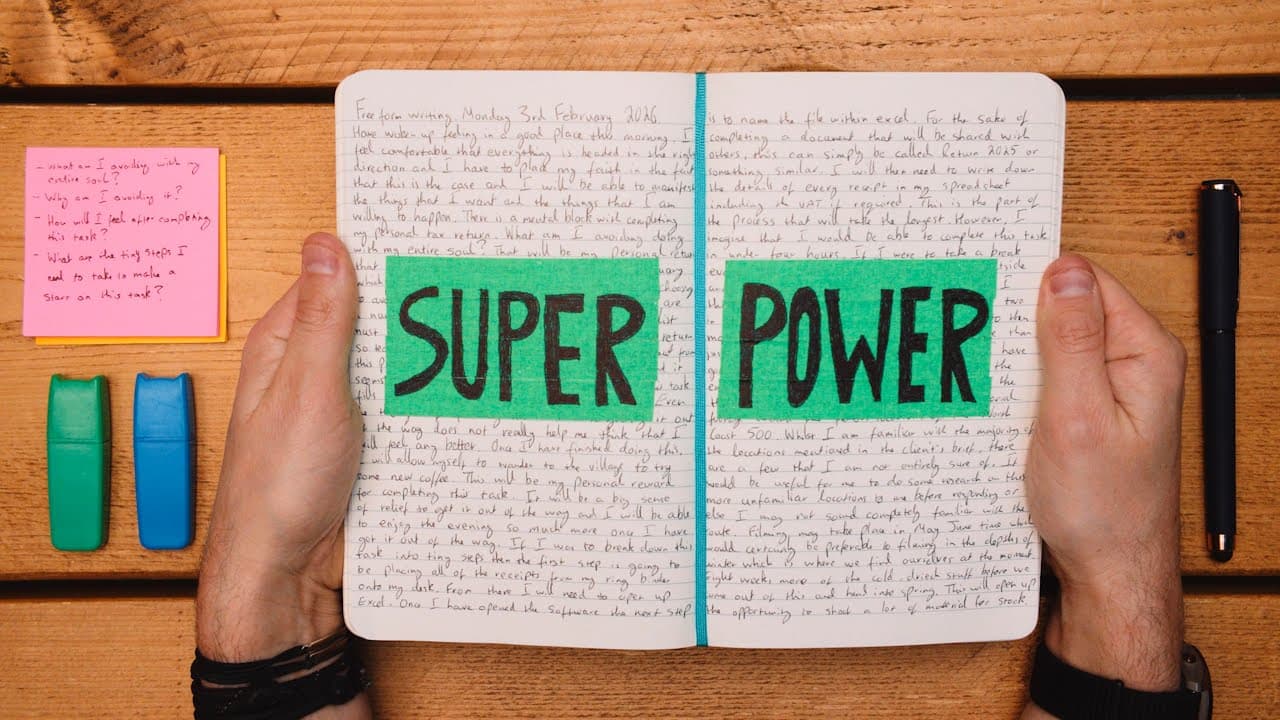 - What am I avoiding with my
entire soul?
- Why am I avoiding it?
- How will I feel after completing
this task?
- What are the tiny steps I
need to take to make a
start on this task?
Free form writing. Monday 3rd February 2026.
Have woken up feeling in a good place this morning. I
feel comfortable that everything is headed in the right
direction and I have to place my faith in the fact
that this is the case and I will be able to manifest
the things that I want and the things that I am
willing to happen. There is a mental block with completing
my personal tax return. What am I avoiding doing
with my entire soul? That will be my personal return
that
what
are
must
list
this
it
seems
task
fills
Even
it out
the way does not really help me think that I
will feel any better. Once I have finished doing this,
I will allow myself to wander to the village to try
some new coffee. This will be my personal reward
for completing this task. It will be a big sense
of relief to get it out of the way and I will be able
to enjoy the evening so much more once I have
got it out of the way. If I was to break down this
task into tiny steps then the first step is going to
be placing all of the receipts from my ring binder
onto my desk. From there I will need to open up
Excel. Once I have opened the software the next step
SUPER
POWER
is to name the file within excel. For the sake of
completing a document that will be shared with
others, this can simply be called Return 2025 or
something similar. I will then need to write down
the details of every receipt in my spreadsheet
including the VAT if required. This is the part of
the process that will take the longest. However, I
imagine that I would be able to complete this task
in under four hours. If I were to take a break
I
two
then
than
have
the
Coast 500. Whilst I am familiar with the majority of
the locations mentioned in the client's brief, there
are a few that I am not entirely sure of. It
would be useful for me to do some research on these
more unfamiliar locations before responding or
else I may not sound completely familiar with the
route. Filming may take place in May June time which
would certainly be preferable to filming in the depths of
winter which is where we find ourselves at the moment.
Eight weeks more of the cold, dried stuff before we
come out of this and head into spring. This will open up
the opportunity to shoot a lot of material for stock